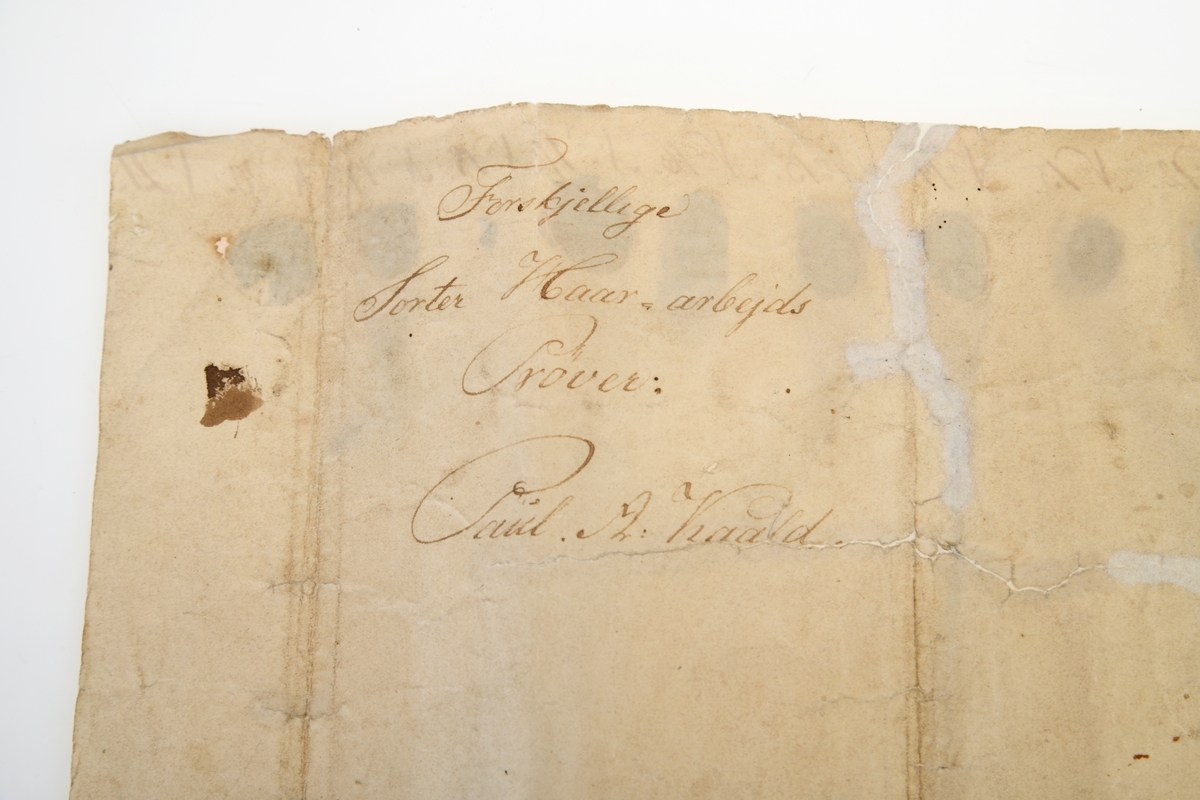 Forskjellige
Sorter Haar=arbejds
Prøver:
Paul. A: Kaald.